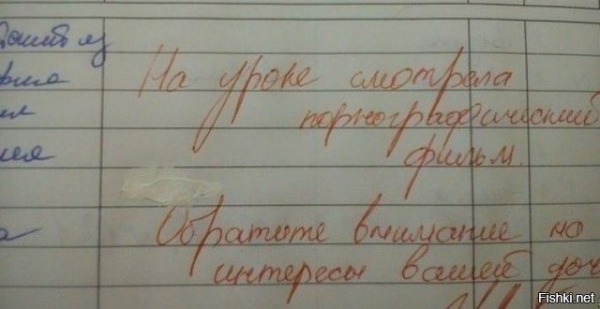 На уроке смотрела
порнографический
фильм.
Обратите внимание на
интересы вашей доч
Fishki.net